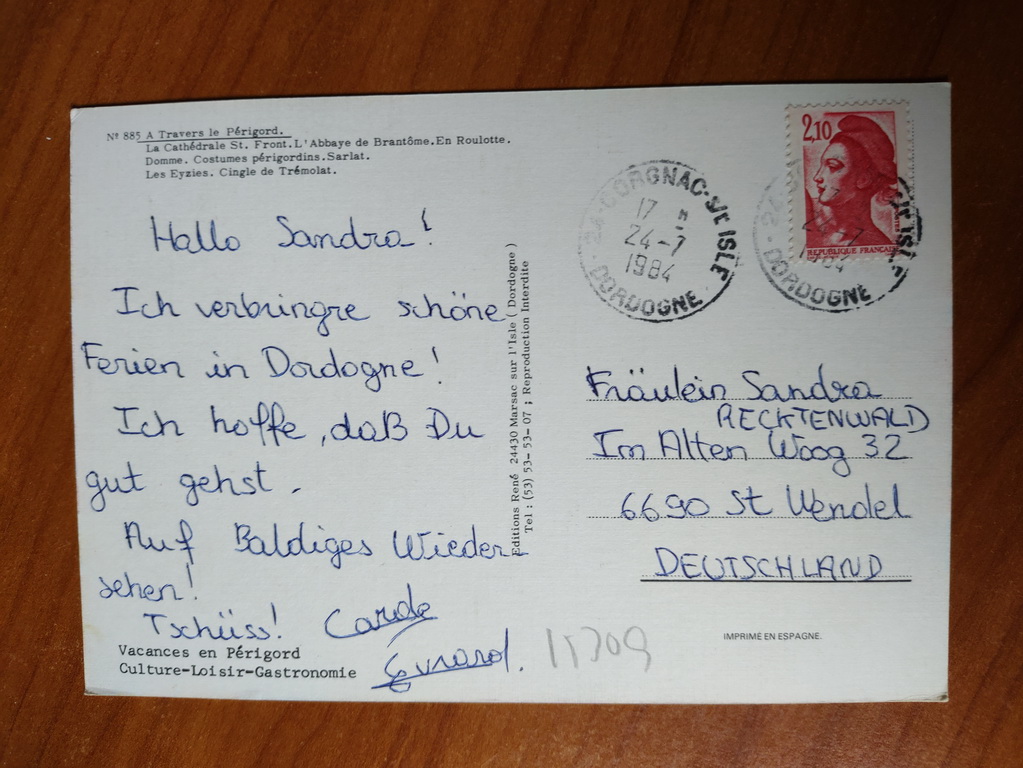 Nº 885 A Travers le Périgord.
La Cathédrale St. Front. L'Abbaye de Brantôme. En Roulotte.
Domme. Costumes périgordins. Sarlat.
Les Eyzies. Cingle de Trémolat.
Hallo Sandra!
Ich verbringre schöne
Ferien in Dordogne!
Ich hoffe, daß Du
gut gehst.
Auf Baldiges Wieder-
sehen!
Tschüss! Carole
Evrard.
Vacances en Périgord
Culture-Loisir-Gastronomie
Editions René 24430 Marsac sur l'Isle (Dordogne)
Tel: (53) 53-53-07; Reproduction Interdite
24 CORGNAC-S/r ISLE
17 H
24-7
1984
DORDOGNE
2,10
REPUBLIQUE FRANÇAISE
24
S/r ISLE
24-7
1984
DORDOGNE
Fräulein Sandra
RECKTENWALD
Im Alten Woog 32
6690 St Wendel
DEUTSCHLAND
IMPRIMÉ EN ESPAGNE.